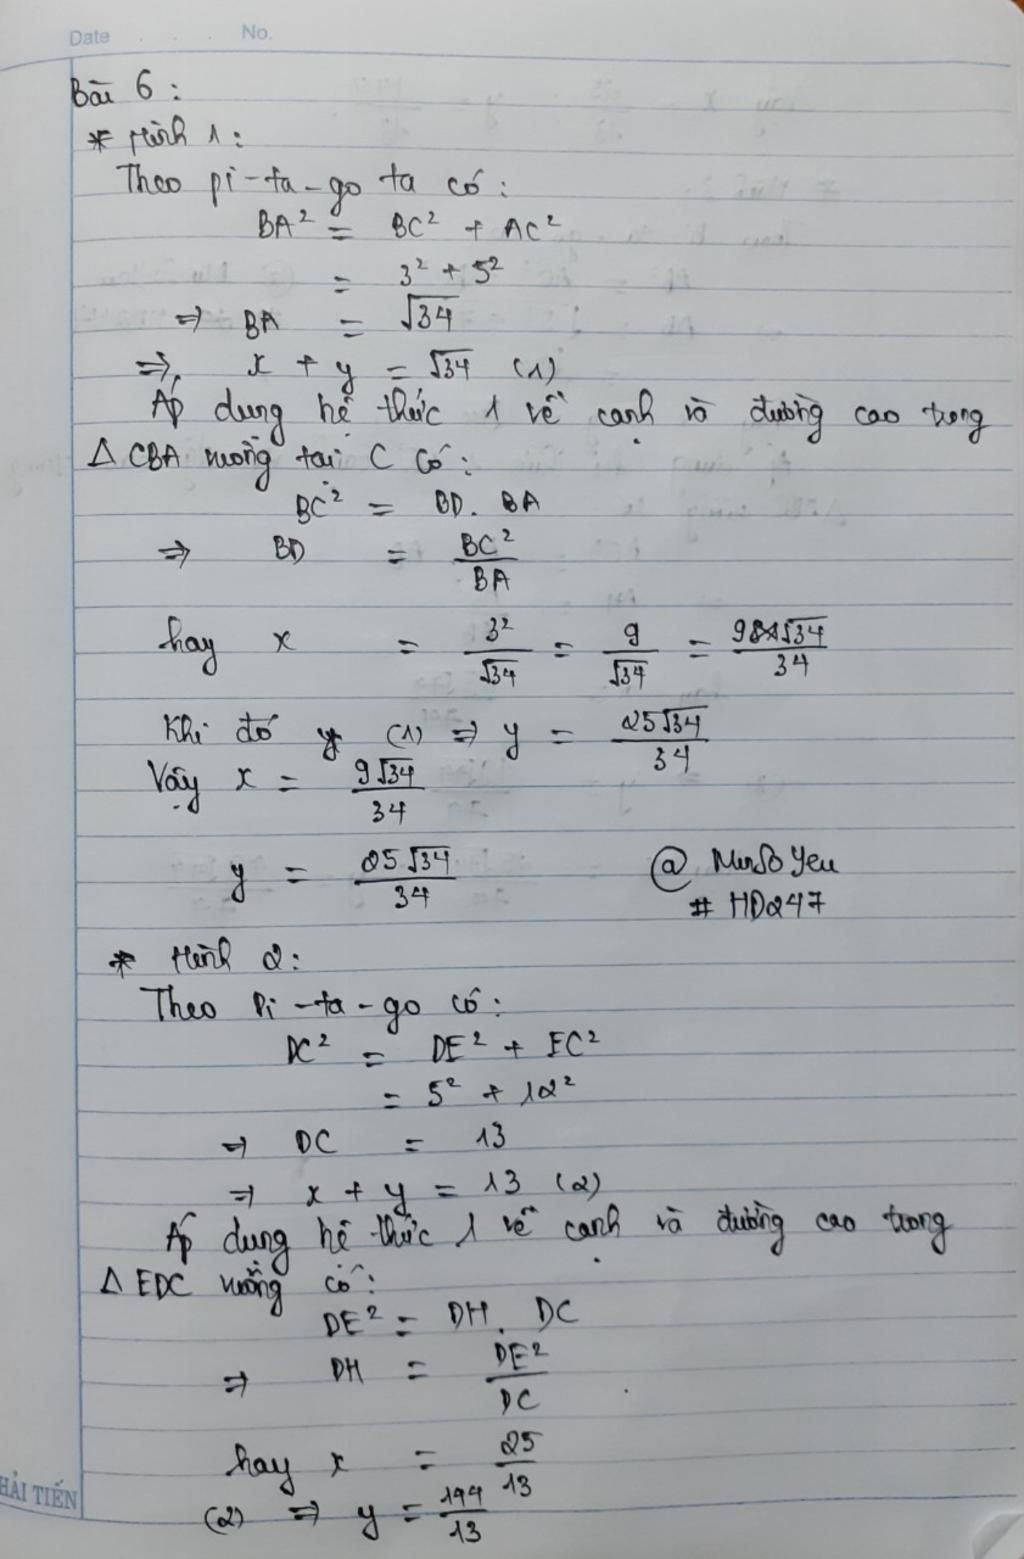 Date . . . No.
Bài 6 :
* Hình 1 :
Theo pi-ta-go ta có :
BA² = BC² + AC²
= 3² + 5²
⇒ BA = √34
⇒ x + y = √34 (1)
Áp dụng hệ thức 1 về cạnh và đường cao trong
Δ CBA vuông tại C có :
BC² = BD. BA
⇒ BD = BC²/BA
hay x = 3²/√34 = 9/√34 = 9√34/34
Khi đó (1) ⇒ y = 25√34/34
Vậy x = 9√34/34
y = 25√34/34
@ Yeu
# HD247
* Hình 2 :
Theo Pi-ta-go có :
DC² = DE² + EC²
= 5² + 12²
⇒ DC = 13
⇒ x + y = 13 (2)
Áp dụng hệ thức 1 về cạnh và đường cao trong
Δ EDC vuông có :
DE² = DH. DC
⇒ DH = DE²/DC
hay x = 25/13
(2) ⇒ y = 144/13
HẢI TIẾN